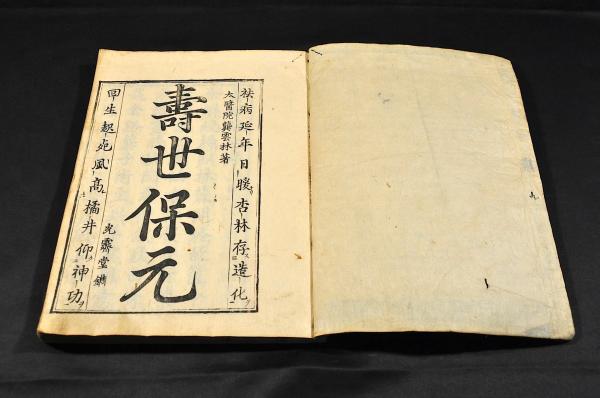 祛病延年日暖杏林存造化
太醫院龔雲林著
壽世保元
光霽堂鐫
囘生起死風高橘井仰神功